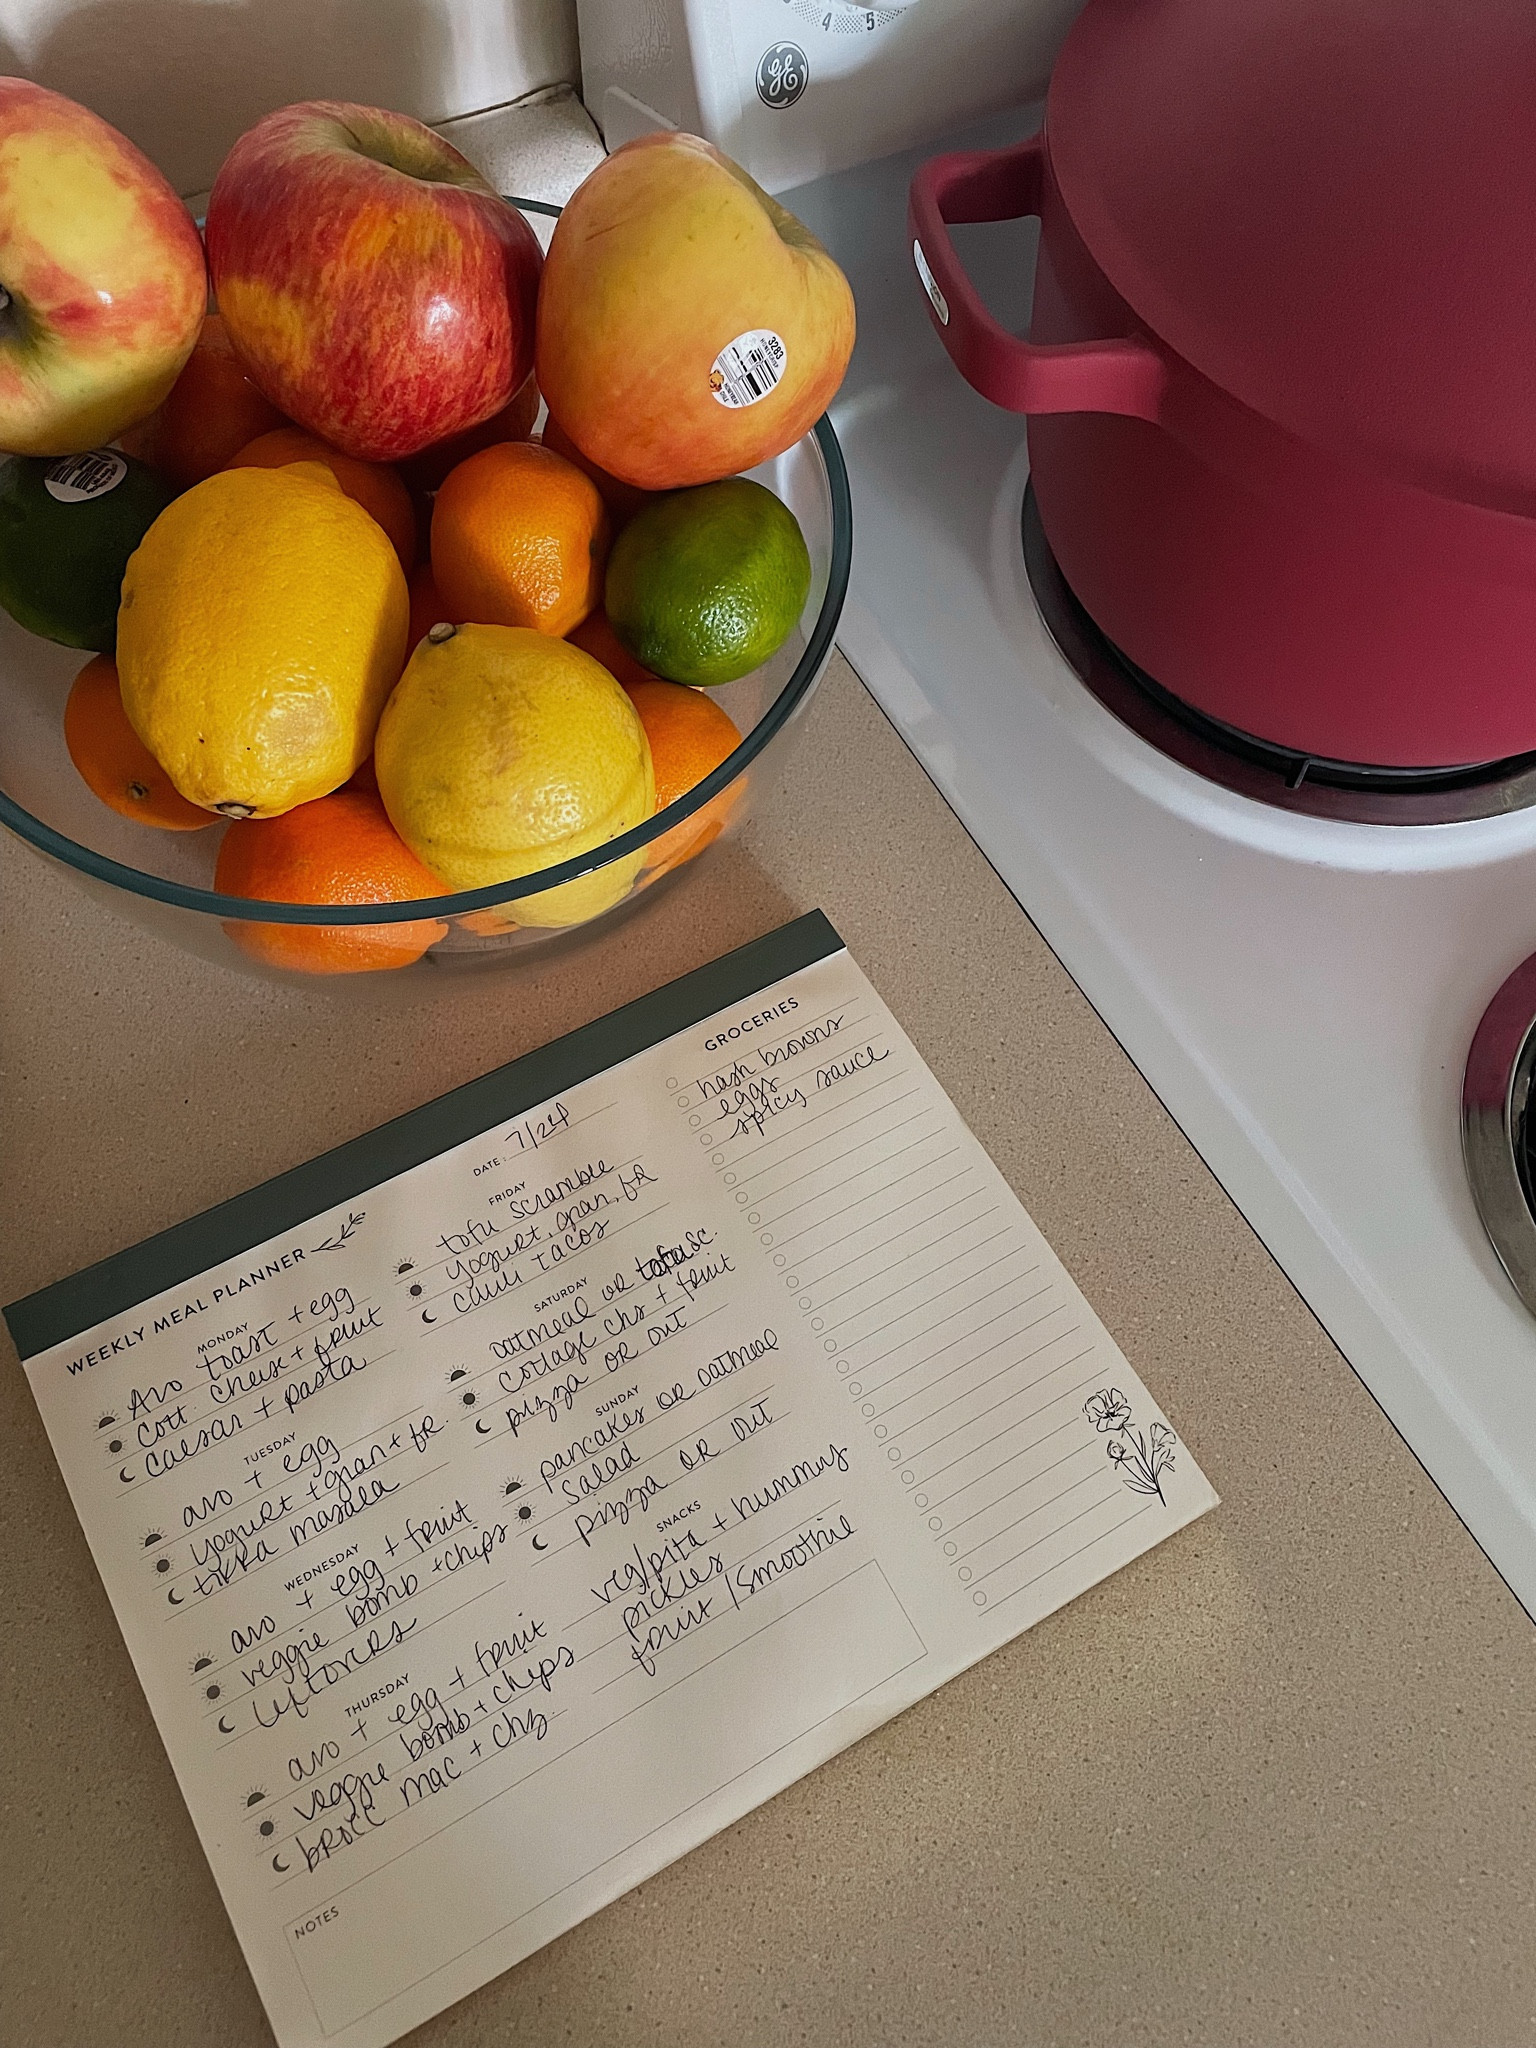 4 5
GE
3283
HONEYCRISP
WEEKLY MEAL PLANNER
DATE: 7/24
MONDAY
Avo toast + egg
cott. cheese + fruit
caesar + pasta
TUESDAY
avo + egg
yogurt + gran + fr.
tikka masala
WEDNESDAY
avo + egg + fruit
veggie bomb + chips
leftovers
THURSDAY
avo + egg + fruit
veggie bomb + chips
brocc mac + chz.
FRIDAY
tofu scramble
yogurt, gran, fr
cauli tacos
SATURDAY
oatmeal or tofu sc.
cottage chs + fruit
pizza or out
SUNDAY
pancakes or oatmeal
salad
pizza or out
SNACKS
veg/pita + hummus
pickles
fruit / smoothie
NOTES
GROCERIES
hash browns
eggs
spicy sauce